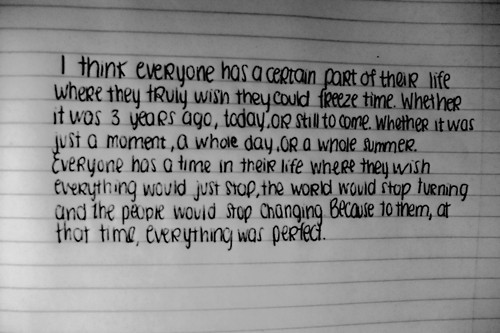 I think everyone has a certain part of their life
where they truly wish they could freeze time. Whether
it was 3 years ago, today, or still to come. Whether it was
just a moment, a whole day, or a whole summer.
Everyone has a time in their life where they wish
everything would just stop, the world would stop turning
and the people would stop changing Because to them, at
that time, everything was perfect.